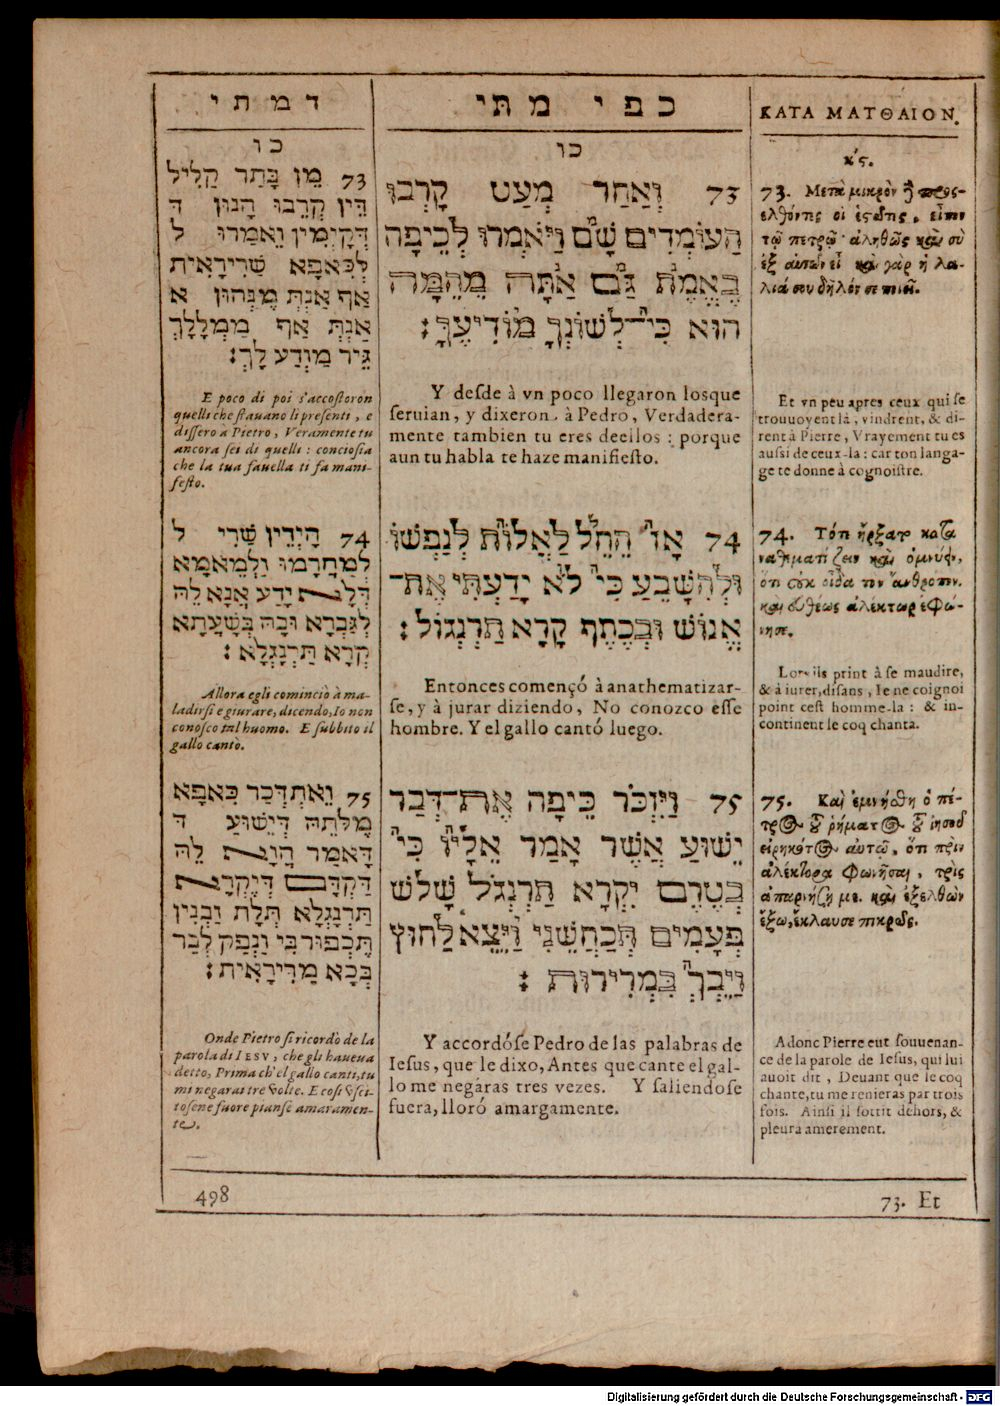 דמתי
כו
73 מֵן בָּתַר קַלִיל
דֵּין קְרֵבוּ הָנוּן ד
דְּקָיְמִין וֵאמַרוּ ל
לְכִּאפָא שְׁרִירָאִית
אַף אַנְתְּ מֶנְּהוּן א
אַנְתְּ אַף מַמְלָלָךְ
גֵּיר מַוְדַע לָךְ:
E poco di poi s'accostoron
quelli che stauano li presenti, e
dissero a Pietro, Veramente tu
ancora sei di quelli: conciosia
che la tua fauella ti fa mani-
festo.
74 הָיְדֵין שַׁרִי ל
לְמַחֲרָמוּ וַלְמֵאמָא
דְּלָא יָדַע אֲנָא לֵהּ
לְגַבְרָא וּבָהּ בְּשָׁעֲתָא
קְרָא תַּרְנָגְלָא:
Allora egli cominciò à ma-
ladirsi e giurare, dicendo, Io non
conosco tal huomo. E subbito il
gallo cantò.
75 וֵאתְדְּכַר כִּאפָא
מֶלְּתֵהּ דְּיֵשׁוּעַ ד
דָּאמַר הֲוָא לֵהּ
דַּקְדָּם דְּיֶקְרָא
תַּרְנָגְלָא תְּלָת זַבְנִין
תֶּכְפּוּר בִּי וַנְפַק לְבַר
בְּכָא מַרִּירָאִית:
Onde Pietro si ricordò de la
parola di IESV, che gli haueua
detto, Prima ch'el gallo canti, tu
mi negarai tre volte. E così vsci-
tosene fuore pianse amaramen-
te.
כפי מתי
כו
73 וְאַחַר מְעַט קָרְבוּ
הַעוֹמְדִים שָׁם וַיֹּאמְרוּ לְכֵיפָה
בֶּאֱמֶת גַּם אַתָּה מֵהֵמָּה
הוּא כִּי־לְשׁוֹנְךָ מוֹדִיעֶךָּ:
Y desde à vn poco llegaron los que
seruian, y dixeron à Pedro, Verdadera-
mente tambien tu eres decilos: porque
aun tu habla te haze manifiesto.
74 אָז הֵחֵל לַאֲלוֹת לְנַפְשׁוֹ
וּלְהִשָּׁבֵעַ כִּי לֹא יָדַעְתִּי אֶת־
אֱנוֹשׁ וּבְכֶתֶף קָרָא תַּרְנְגוֹל:
Entonces començó à anathematizar-
se, y à jurar diziendo, No conozco esse
hombre. Y el gallo cantó luego.
75 וַיִּזְכֹּר כֵּיפָה אֶת־דְּבַר
יֵשׁוּעַ אֲשֶׁר אָמַר אֵלָיו כִּי
בְּטֶרֶם יִקְרָא תַּרְנְגֹל שָׁלֹשׁ
פְּעָמִים תְּכַחֲשֵׁנִי וַיֵּצֵא לַחוּץ
וַיֵּבְךְּ בִּמְרִירוּת:
Y accordóse Pedro de las palabras de
Iesus, que le dixo, Antes que cante el gal-
lo me negáras tres vezes. Y saliendose
fuera, lloró amargamente.
ΚΑΤΑ ΜΑΤΘΑΙΟΝ.
κς.
73. Μετὰ μικρὸν ἢ προς-
ελθόντες οἱ ἑστῶτες, εἶπον
τῷ πετρῷ· ἀληθῶς καὶ σὺ
ἐξ αὐτῶν εἶ καὶ γὰρ ἡ λα-
λιά σου δῆλόν σε ποιεῖ.
Et vn peu apres ceux qui se
trouuoyent là, vindrent, & di-
rent à Pierre, Vrayement tu es
aussi de ceux-la: car ton langa-
ge te donne à cognoistre.
74. Τότε ἤρξατο κατα
ναθεματίζειν καὶ ὀμνύειν,
ὅτι οὐκ οἶδα τὸν ἄνθρωπον.
καὶ εὐθέως ἀλέκτωρ ἐφώ-
νησε.
Lors ils print à se maudire,
& à iurer, disans, Ie ne coignoi
point cest homme-la: & in-
continent le coq chanta.
75. Καὶ ἐμνήσθη ὁ πέ-
τρος τοῦ ῥήματος τοῦ ἰησοῦ
εἰρηκότος αὐτῷ, ὅτι πρὶν
ἀλέκτορα φωνῆσαι, τρὶς
ἀπαρνήσῃ με. καὶ ἐξελθὼν
ἔξω, ἔκλαυσε πικρῶς.
Adonc Pierre eut souuenan-
ce de la parole de Iesus, qui lui
auoit dit, Deuant que le coq
chante, tu me renieras par trois
fois. Ainsi il sortit dehors, &
pleura amerement.
498
73. Et
Digitalisierung gefördert durch die Deutsche Forschungsgemeinschaft - DFG